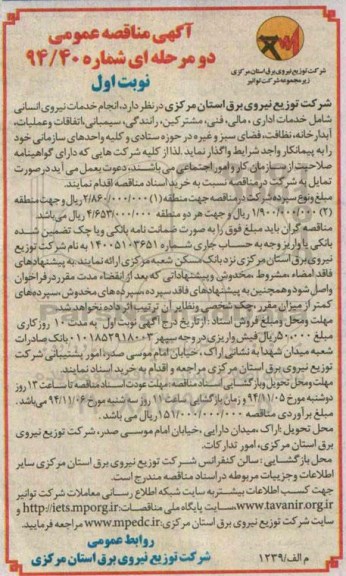 آگهی مناقصه عمومی
دو مرحله ای شماره ۹۴/۴۰
نوبت اول
شرکت توزیع نیروی برق استان مرکزی
زیرمجموعه شرکت توانیر
شرکت توزیع نیروی برق استان مرکزی در نظر دارد، انجام خدمات نیروی انسانی
شامل خدمات اداری ، مالی، فنی، مشترکین، رانندگی، سیمبانی، اتفاقات و عملیات،
آبدارخانه، نظافت، فضای سبز و غیره در حوزه ستادی و کلیه واحدهای سازمانی خود
را به پیمانکار واجد شرایط واگذار نماید. لذا از کلیه شرکت هایی که دارای گواهینامه
صلاحیت از سازمان کار و امور اجتماعی می باشند، دعوت بعمل می آید در صورت
تمایل به شرکت در مناقصه نسبت به خرید اسناد مناقصه اقدام نمایند.
مبلغ و نوع سپرده شرکت در مناقصه جهت منطقه (۱) ۲/۸۶۰/۰۰۰/۰۰۰ ریال و جهت منطقه
(۲) ۱/۹۰۰/۰۰۰/۰۰۰ ریال و جهت هر دو منطقه ۴/۶۵۳/۰۰۰/۰۰۰ ریال می باشد.
مناقصه گران باید مبلغ فوق را به صورت ضمانت نامه بانکی و یا چک تضمین شده
بانکی یا واریز وجه به حساب جاری شماره ۱۴۰۰۵۱۰۳۶۵۱ به نام شرکت توزیع
نیروی برق استان مرکزی نزد بانک مسکن شعبه مرکزی ارائه نمایند. به پیشنهادهای
فاقد امضاء، مشروط، مخدوش و پیشنهاداتی که بعد از انقضاء مدت مقرر در فراخوان
واصل شود و همچنین به پیشنهادهای فاقد سپرده، سپرده های مخدوش، سپرده های
کمتر از میزان مقرر، چک شخصی و نظایر آن ترتیب اثر داده نخواهد شد.
مهلت و محل و مبلغ فروش اسناد : از تاریخ درج آگهی نوبت اول به مدت ۱۰ روز کاری
مبلغ ۵۰۰/۰۰۰ ریال فیش واریزی در وجه سپهر ۰۱۰۱۸۵۲۹۱۸۰۰۳ بانک صادرات
شعبه میدان شهدا به نشانی اراک ، خیابان امام موسی صدر، امور پشتیبانی شرکت
توزیع نیروی برق استان مرکزی مراجعه و اقدام به خرید اسناد نمایند.
مهلت و محل تحویل و بازگشایی اسناد مناقصه: مهلت عودت اسناد مناقصه تا ساعت ۱۳ روز
دوشنبه مورخ ۹۴/۱۱/۰۵ و زمان بازگشایی ساعت ۱۱ روز سه شنبه مورخ ۹۴/۱۱/۰۶ می باشد.
مبلغ برآوردی مناقصه ۱۵۱/۰۰۰/۰۰۰/۰۰۰ ریال می باشد .
محل تحویل : اراک ،میدان دارایی ،خیابان امام موسی صدر، شرکت توزیع نیروی
برق استان مرکزی، امور تدارکات.
محل بازگشایی : سالن کنفرانس شرکت توزیع نیروی برق استان مرکزی سایر
اطلاعات و جزییات مربوطه در اسناد مناقصه مندرج است.
جهت کسب اطلاعات بیشتر به سایت شبکه اطلاع رسانی معاملات شرکت توانیر
www.tavanir.org.ir، سایت پایگاه ملی مناقصات: http://iets.mporg.ir و
سایت شرکت توزیع نیروی برق استان مرکزی: www.mpedc.ir مراجعه فرمایید.
روابط عمومی
شرکت توزیع نیروی برق استان مرکزی
م الف/۱۲۳۹